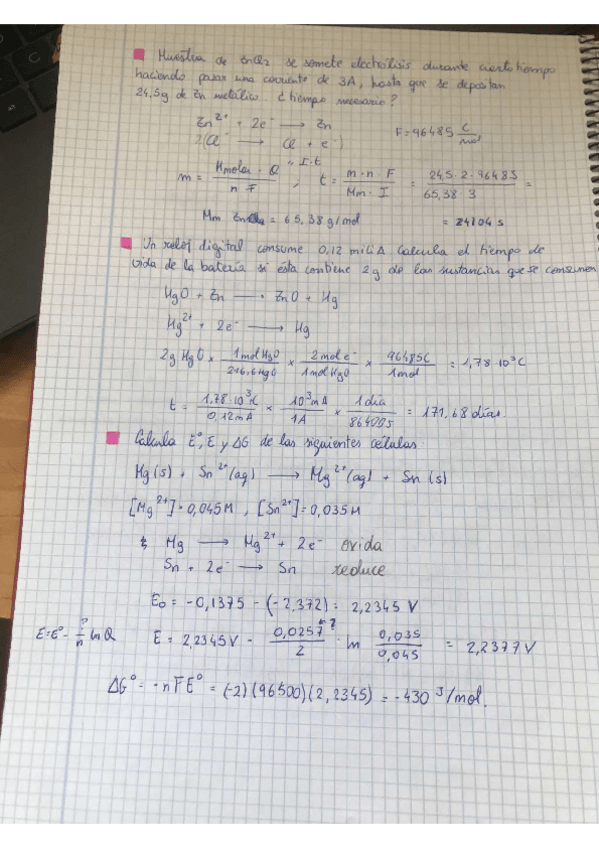 Muestra de ZnCl2 se somete electrólisis durante cierto tiempo
haciendo pasar una corriente de 3A, hasta que se depositan
24,5g de Zn metálico. ¿tiempo necesario?
Zn²⁺ + 2e⁻ → Zn
2(Cl⁻ → Cl + e⁻)
F = 96485 C/mol
m = Mmolar · Q / n F " I·t , t = m · n · F / Mm · I = 24,5 · 2 · 96485 / 65,38 · 3 =
Mm Zn = 65,38 g/mol
= 24104 s
Un reloj digital consume 0,12 mili A Calcula el tiempo de
vida de la batería si ésta contiene 2g de las sustancias que se consumen
HgO + Zn → ZnO + Hg
Hg²⁺ + 2e⁻ → Hg
2g HgO × 1mol HgO / 216,6 HgO × 2mol e⁻ / 1mol HgO × 96485C / 1mol = 1,78 · 10³ C
t = 1,78 · 10³C / 0,12mA × 10³ mA / 1A × 1día / 86400S = 171,68 días.
Calcula E°, E y ΔG de las siguientes células:
Mg (s) + Sn²⁺ (aq) → Mg²⁺ (aq) + Sn (s)
[Mg²⁺] = 0,045M , [Sn²⁺] = 0,035M
Mg → Mg²⁺ + 2e⁻ oxida
Sn + 2e⁻ → Sn reduce
E₀ = -0,1375 - (-2,372) = 2,2345 V
E = E° - / n ln Q
E = 2,2345V - 0,0257 / 2 ln 0,035 / 0,045 = 2,2377 V
ΔG° = - n F E° = (-2) (96500) (2,2345) = -430 J/mol.